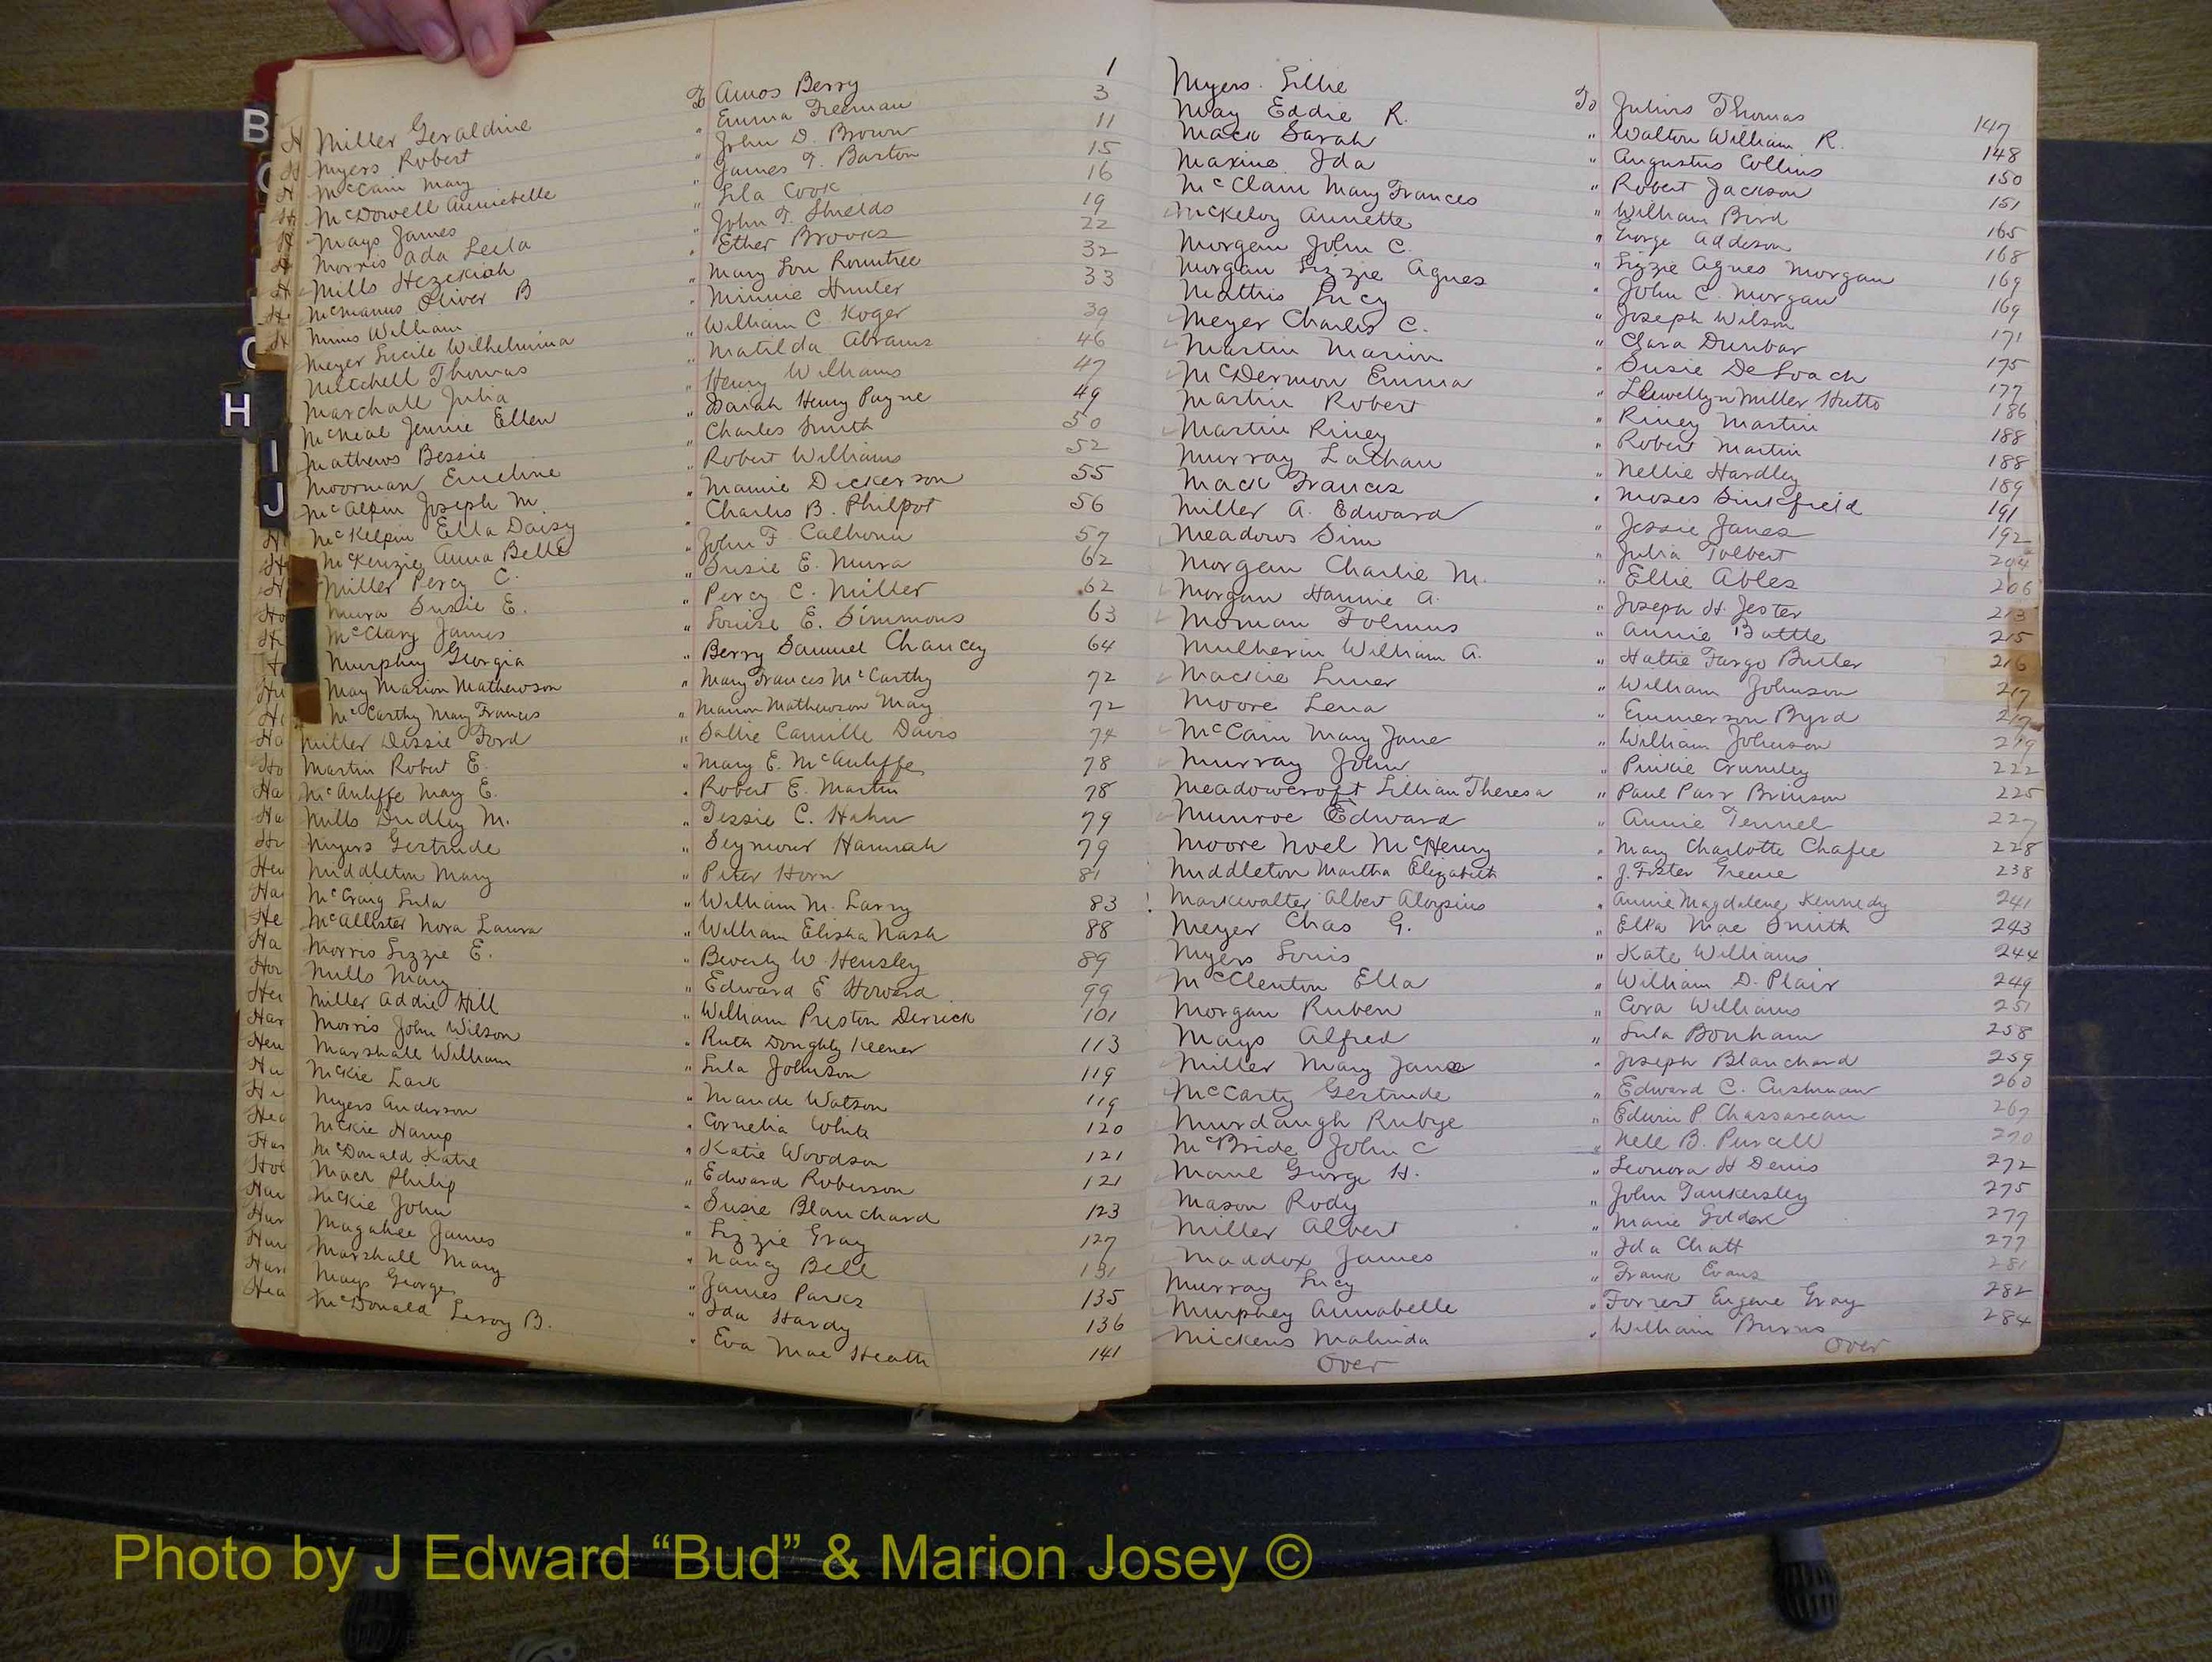 B
H
I
J
Miller Geraldine To Amos Berry 1
Myers Robert " Emma Freeman 3
McCain Mary " John D. Brown 11
McDowell Anniebelle " James T. Barton 15
Mays James " Lila Cook 16
Morris Ada Leila " John T. Shields 19
Mills Hezekiah " Ether Brooks 22
McManus Oliver B " Mary Lou Rountree 32
Mims William " Minnie Hunter 33
Meyer Lucile Wilhelmina " William C. Koger 39
Mitchell Thomas " Matilda Abrams 46
Marshall Julia " Henry Williams 47
McNeal Jennie Ellen " Isaiah Henry Payne 49
Mathews Bessie " Charles Smith 50
Moorman Emeline " Robert Williams 52
McAlpin Joseph M " Mamie Dickerson 55
McKelpin Ella Daisy " Charles B. Philpot 56
McKenzie Anna Belle " John F. Calhoun 57
Miller Percy C. " Susie E. Mura 62
Mura Susie E. " Percy C. Miller 62
McClary James " Louise E. Simmons 63
Murphy Georgia " Berry Samuel Chancey 64
May Marion Mathewson " Mary Frances McCarthy 72
McCarthy Mary Frances " Marion Mathewson May 72
Miller Dessie Ford " Sallie Camille Davis 74
Martin Robert E. " Mary E. McAuliffe 78
McAuliffe Mary E. " Robert E. Martin 78
Mills Dudley M. " Tessie C. Hahn 79
Myers Gertrude " Seymour Hannah 79
Middleton Mary " Peter Horn 81
McCraig Lula " William M. Larry 83
McAllister Nora Laura " William Elisha Nash 88
Morris Lizzie E. " Beverly W Hensley 89
Mills Mary " Edward E Howard 99
Miller Addie Hill " William Preston Derrick 101
Morris John Wilson " Ruth Doughty Keener 113
Marshall William " Lula Johnson 119
McKie Lark " Maude Watson 119
Myers Anderson " Cornelia White 120
McKie Hamp " Katie Woodson 121
McDonald Katie " Edward Roberson 121
Mack Philip " Susie Blanchard 123
McKie John " Lizzie Gray 127
Magahee James " Nancy Bell 131
Marshall Mary " James Parks 135
Mays George " Ida Hardy 136
McDonald Leroy B. " Eva Mae Heath 141
Myers Lillie To Julius Thomas 147
May Eddie R. " Walton William R. 148
Mack Sarah " Augustus Collins 150
Maxine Ida " Robert Jackson 151
McClain Mary Frances " William Bird 165
McKelvy Annette " George Addison 168
Morgan John C. " Lizzie Agnes Morgan 169
Morgan Lizzie Agnes " John C. Morgan 169
Mathis Lucy " Joseph Wilson 171
Meyer Charles C. " Clara Dunbar 175
Martin Marion " Susie DeLoach 177
McDermon Emma " Llewellyn Miller Hutto 186
Martin Robert " Riney Martin 188
Martin Riney " Robert Martin 188
Murray Lathan " Nellie Hardley 189
Mack Francis " Moses Sinkfield 191
Miller A. Edward " Jessie Janes 192
Meadows Sim " Julia Tolbert 204
Morgan Charlie M. " Ellie Ables 206
Morgan Hannie A. " Joseph H. Jester 213
Moman Tolmus " Annie Battle 215
Mulherin William A. " Hattie Fargo Butler 216
Mackie Liner " William Johnson 217
Moore Lena " Emmerson Byrd 217
McCain Mary Jane " William Johnson 219
Murray John " Pinkie Crumley 222
Meadowcroft Lillian Theresa " Paul Parr Brinson 225
Munroe Edward " Annie Tennel 227
Moore Noel McHenry " Mary Charlotte Chafee 228
Middleton Martha Elizabeth " J. Foster Greene 238
Markwalter Albert Aloysius " Annie Magdalene Kennedy 241
Meyer Chas G. " Ella Mae Smith 243
Myers Louis " Kate Williams 244
McClenton Ella " William D. Plair 249
Morgan Ruben " Cora Williams 251
Mays Alfred " Lula Bonham 258
Miller Mary Jane " Joseph Blanchard 259
McCarty Gertrude " Edward C. Cushman 260
Murdaugh Rubye " Edwin P. Chassareau 267
McBride John C " Nell B. Purcell 270
Mane George H. " Leonora H Denis 272
Mason Rody " John Tankersley 275
Miller Albert " Marie Golden 277
Maddox James " Ida Chatt 277
Murray Lucy " Frank Evans 281
Murphey Annabelle " Forrest Eugene Gray 282
Mickens Malinda " William Burns 284
Over Over
Photo by J Edward “Bud” & Marion Josey ©